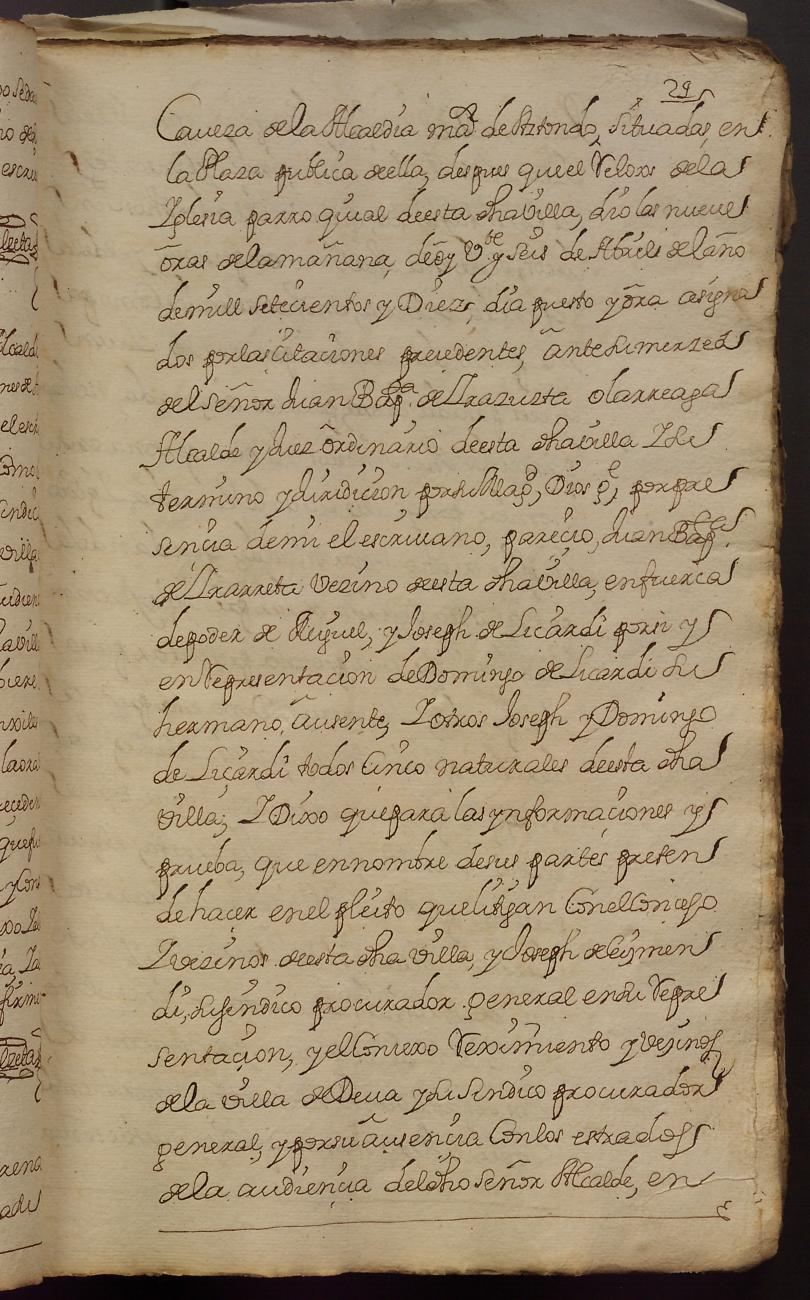 29
Caveza de la Alcaldia maõr de Aiztondo, situadas en
la Plaza publica de ella, despues que el Relox de la
Iglesia parroquial de esta dha villa, dio las nueve
õras de la mañana, de oy Vte y seis de Abril del año
de mill setecientos y Diez, dia puesto y õra asigna
dos por las citaciones precedentes, ãnte su merzed
del señor Juan Bapta de Irazuzta olarreaga
Alcalde y Juez õrdinario de esta dha villa I su
termino y Juridicion por su Magd, Dios ge, por pre
sencia de mi el escrivano, parecio, Juan Bapta
de Irarreta Vezino de esta dha villa, en fuerza
de poder de Miguel, y Joseph de Licardi por si y
en Representacion de Domingo de Licardi su
hermano, ãusente, I otros Joseph y Domingo
de Licardi todos Cinco naturales de esta dha
villa; I Dixo que para las ynformaciones y
prueba, que en nombre de sus partes preten
de hacer en el pleito que litigan Con el Concejo
I vezinos de esta dha villa, y Joseph de Eizmen
di, su sindico procurador general en su Repre
sentacion, y el Concexo Reximiento y Vezinos
de la villa de Deva y su Sindico procurador
general, y por su ãusencia Con los estrados
de la audiencia del dho señor Alcalde, en